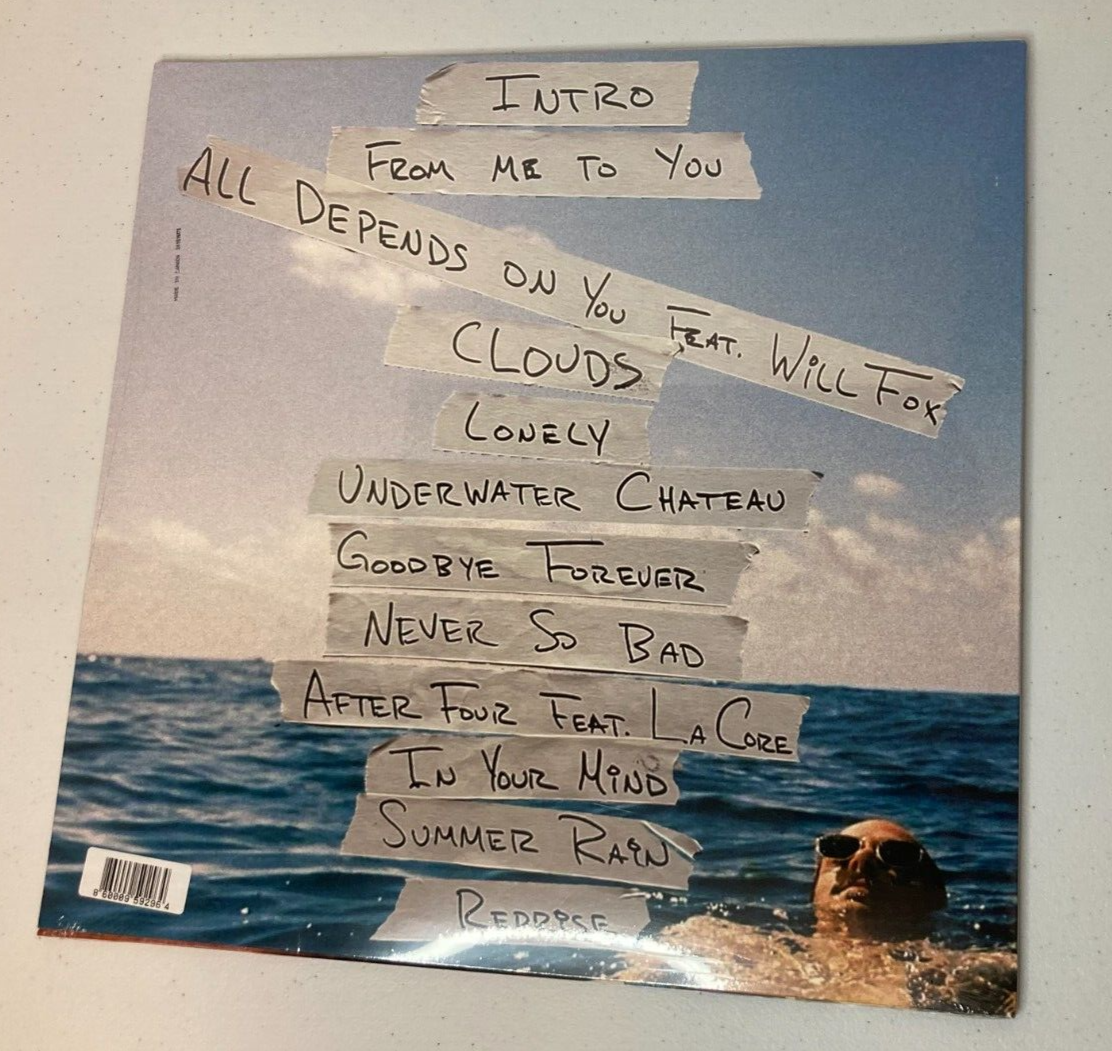 INTRO
FROM ME TO YOU
ALL DEPENDS ON YOU FEAT. WILL FOX
CLOUDS
LONELY
UNDERWATER CHATEAU
GOODBYE FOREVER
NEVER SO BAD
AFTER FOUR FEAT. LA CORE
IN YOUR MIND
SUMMER RAIN
REPRISE
8 60009 59296 4